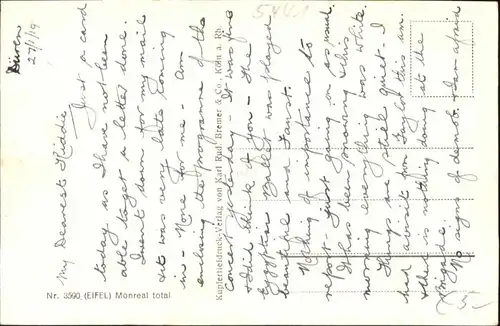 Düren
27/1/19
My Dearest Kiddie
Just a card
today as I have not been
able to get a letter done.
I went down for my mail
& it was very late coming
in - None for me - Am
enclosing the programme of the
concert yesterday - It was fine
& I did think of you - the
Egyptian Ballet was played
beautiful and Faust.
Nothing of importance to
report. Just going on as usual.
It has been snowing & this
morning everything was white.
Things are still quiet - I
had a visit from Taylor this
& there is nothing doing at the
Brigade.
No signs of demob. I am afraid
Kupfertiefdruck-Verlag von Karl Rud. Bremer & Co., Köln a. Rh.
Nr. 3590 (EIFEL) Monreal total
5-